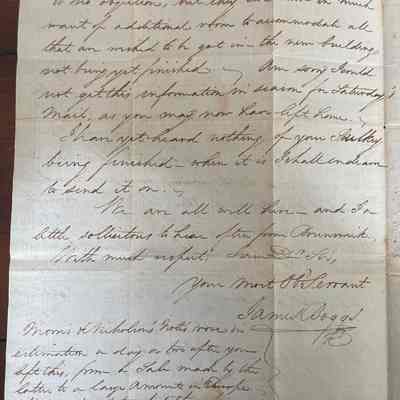 to no objections, but they are in much
want of additional room to accommodate all
that are wished to be got in the new building
not being yet finished Am sorry I could
not get this information in season for Saturday's
Mail, as you may now have left home.
I have yet heard nothing of your Sulkey
being finished when it is I shall endeavor
to send it on.
We are all well here and I a
little sollicitous to hear often from Brunswick
With much respect Dr Sir,
Your Most Obt Servant
James Boggs
Morris & Nicholson's Notes rose in
estimation a day or two after you
left this, from a Sale made by the
latter to a large Amount in Europe